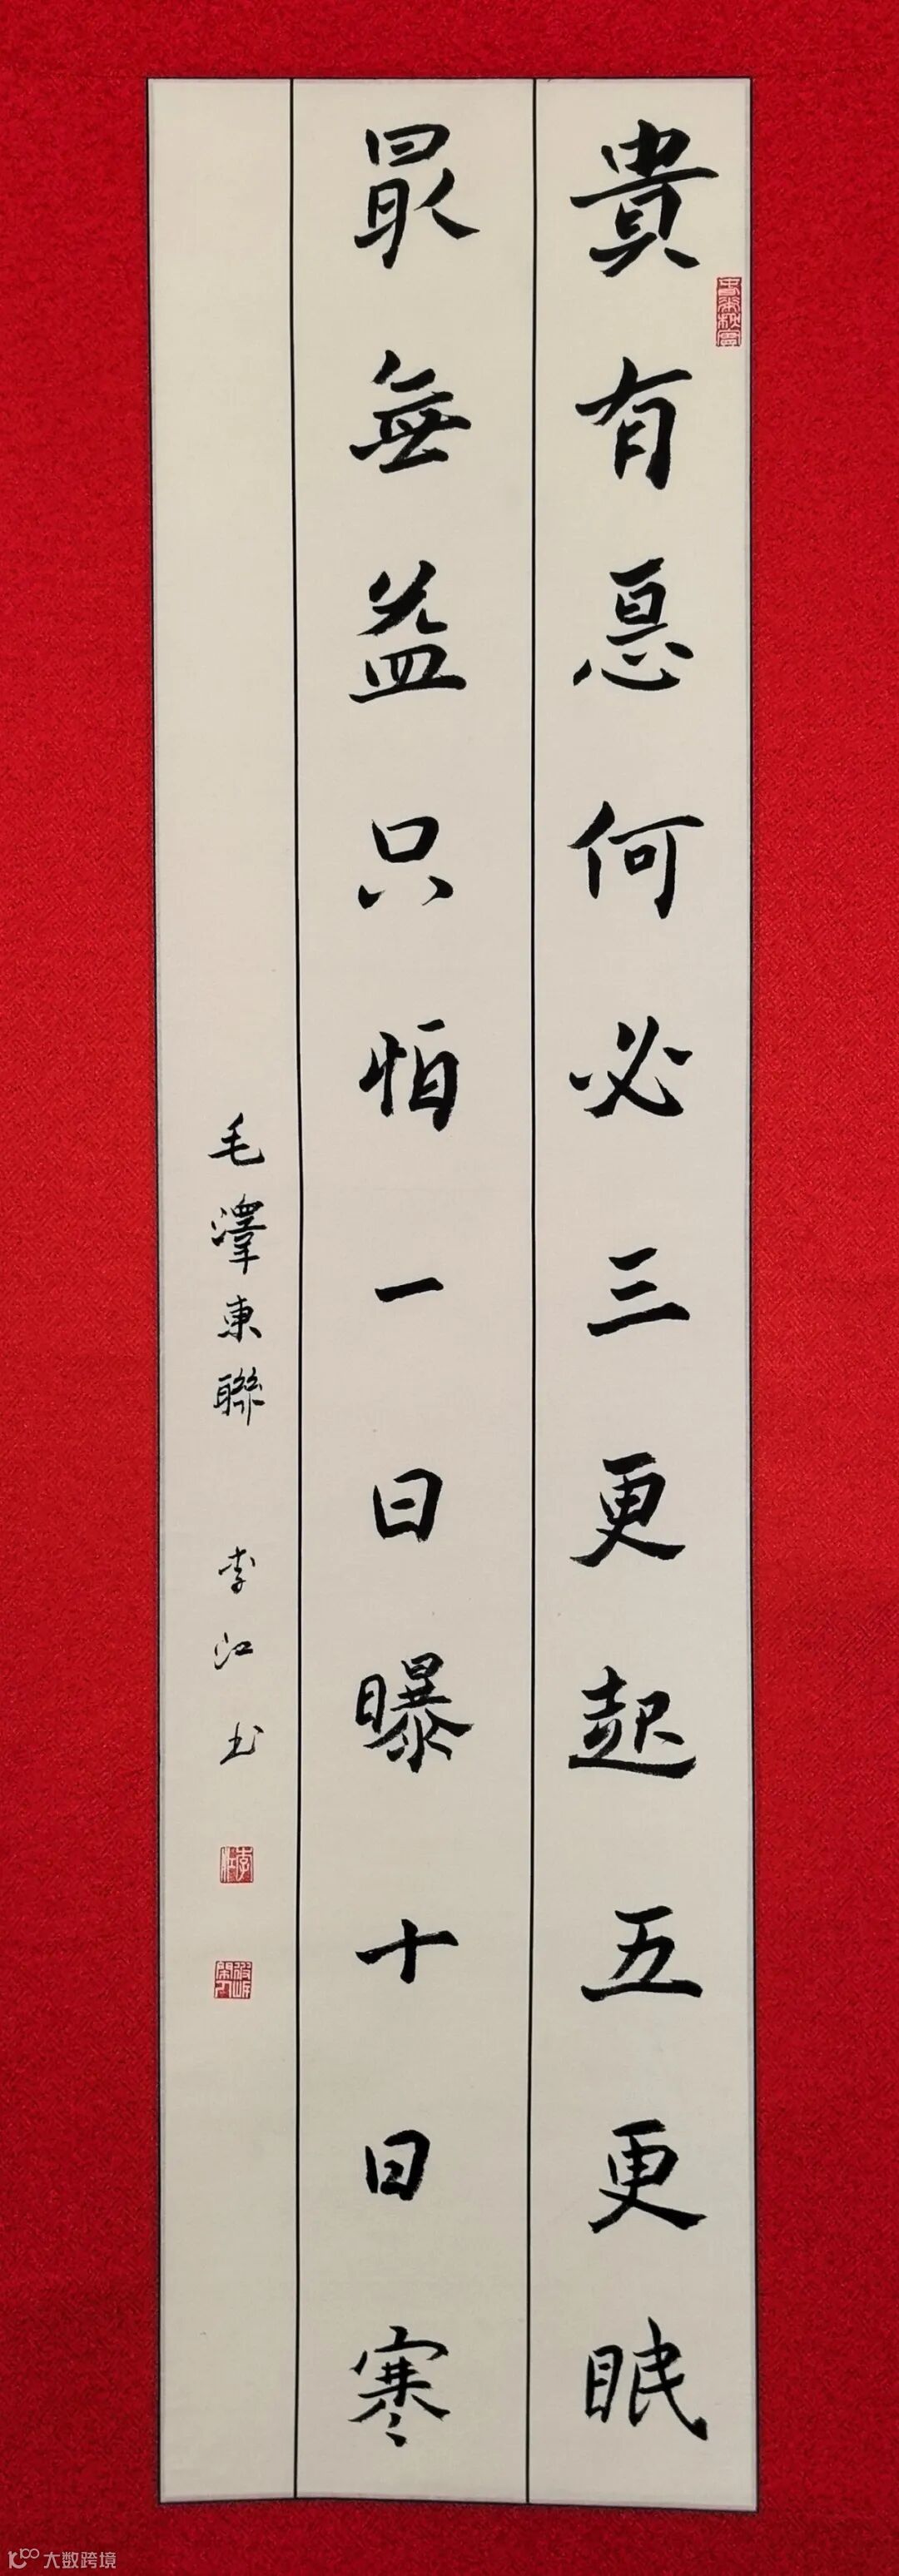 貴有恆何必三更起五更眠
最無益只怕一日曝十日寒
毛澤東聯 李江书
大数跨境